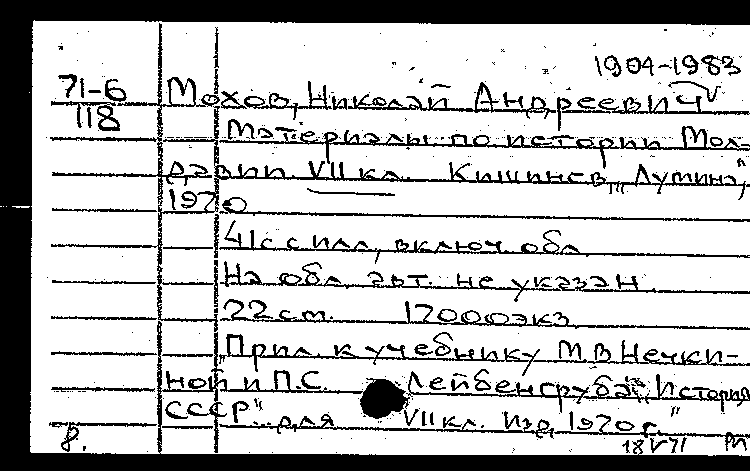 1904-1983
71-6 Мохов, Николай Андреевич
118 Материалы по истории Мол-
давии. VII кл. Кишинев, „Лумина",
1970
41с с илл, включ обл
На обл авт. не указан.
22 см. 17000экз.
„Прил. к учебнику М.В Нечки-
ной и П.С. Лейбенгруба „История
СССР" для VII кл. Изд, 1970 г."
8. 18 V 71 м